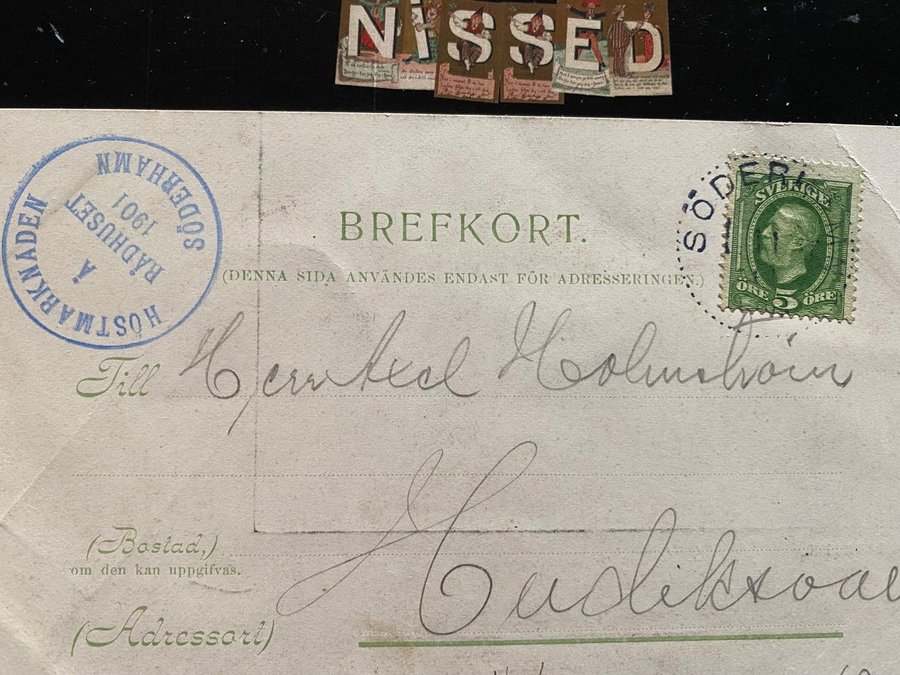 NISSED
HÖSTMARKNADEN
Å
RÅDHUSET
1901
SÖDERHAMN
BREFKORT.
(DENNA SIDA ANVÄNDES ENDAST FÖR ADRESSERINGEN.)
SÖDERH
SVERIGE
ÖRE 5 ÖRE
Till Herr Axel Holmström
(Bostad,)
om den kan uppgifvas.
Hudiksval
(Adressort)